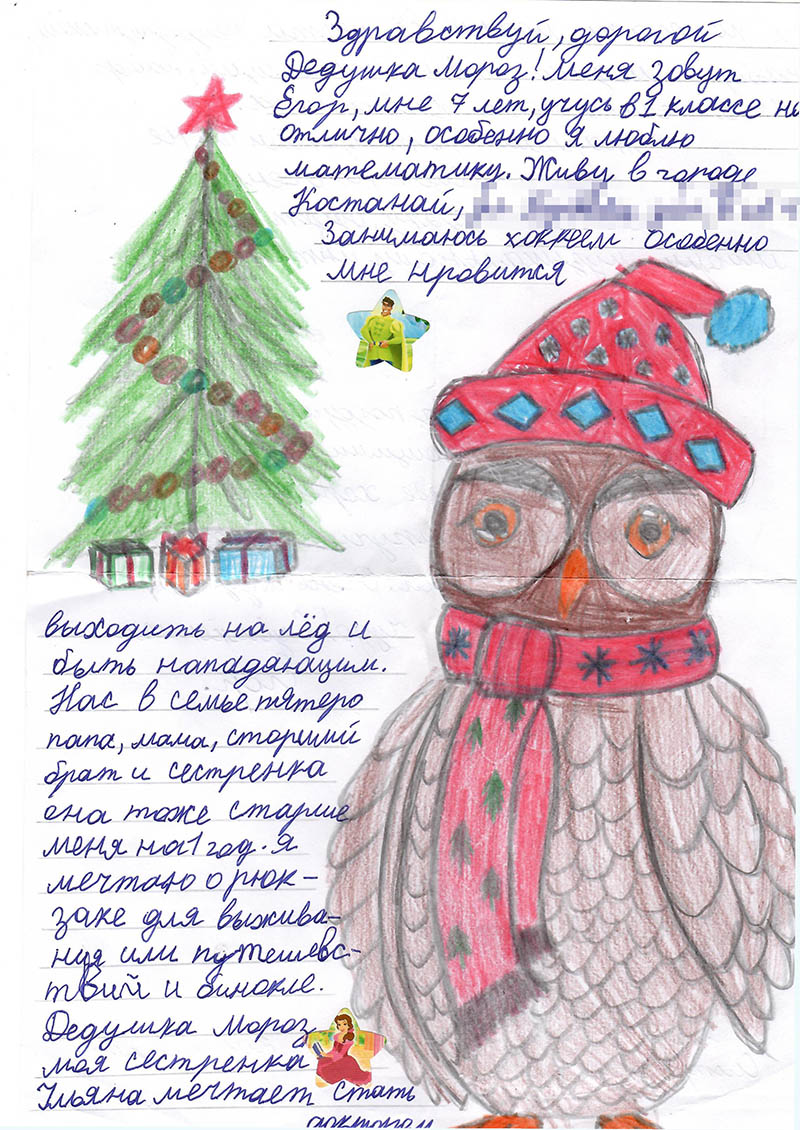 Здравствуй, дорогой
Дедушка Мороз! Меня зовут
Егор, мне 7 лет, учусь в 1 классе на
отлично, особенно я люблю
математику. Живу в городе
Костанай,
Занимаюсь хоккеем особенно
мне нравится
выходить на лёд и
быть нападающим.
Нас в семье пятеро
папа, мама, старший
брат и сестренка
она тоже старше
меня на 1 год. Я
мечтаю о рюк-
заке для выжива-
ния или путешевс-
твий и бинокле.
Дедушка Мороз
моя сестренка
Ульяна мечтает стать